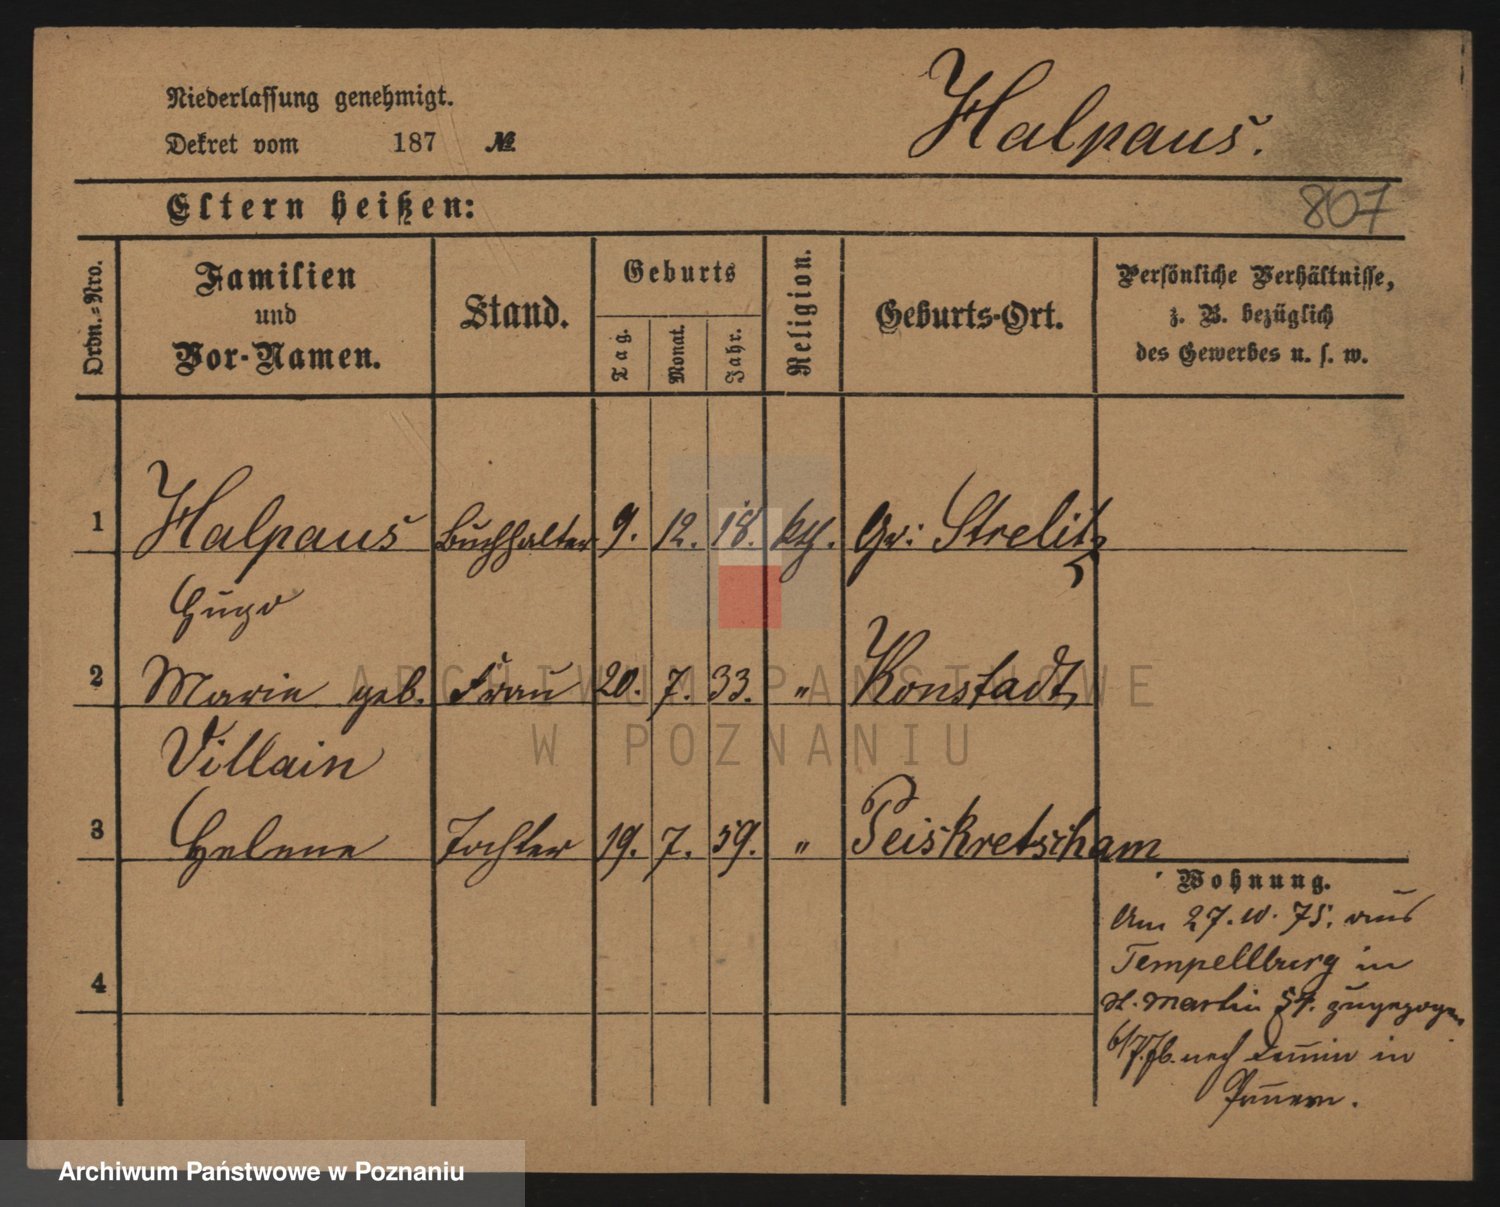 Niederlassung genehmigt.
Dekret vom 187 №
Halpaus.
Eltern heißen:
807
Ordn.-Nro.
Familien
und
Vor-Namen.
Stand.
Geburts
Tag.
Monat.
Jahr.
Religion.
Geburts-Ort.
Persönliche Verhältnisse,
z. B. bezüglich
des Gewerbes u. s. w.
1 Halpaus Buchhalter 9. 12. 18. kth. Gr: Strelitz
Hugo
2 Marie geb. Frau 20. 7. 33. " Konstadt
Villain
3 Helene Tochter 19. 7. 59. " Peiskretscham
Wohnung.
Am 27. 10. 75. aus
Tempellburg in
St. Martin 57. zugezogen
4
6/7. 76. nach Demmin in
Pommern.
ARCHIWUM PAŃSTWOWE
W POZNANIU
Archiwum Państwowe w Poznaniu